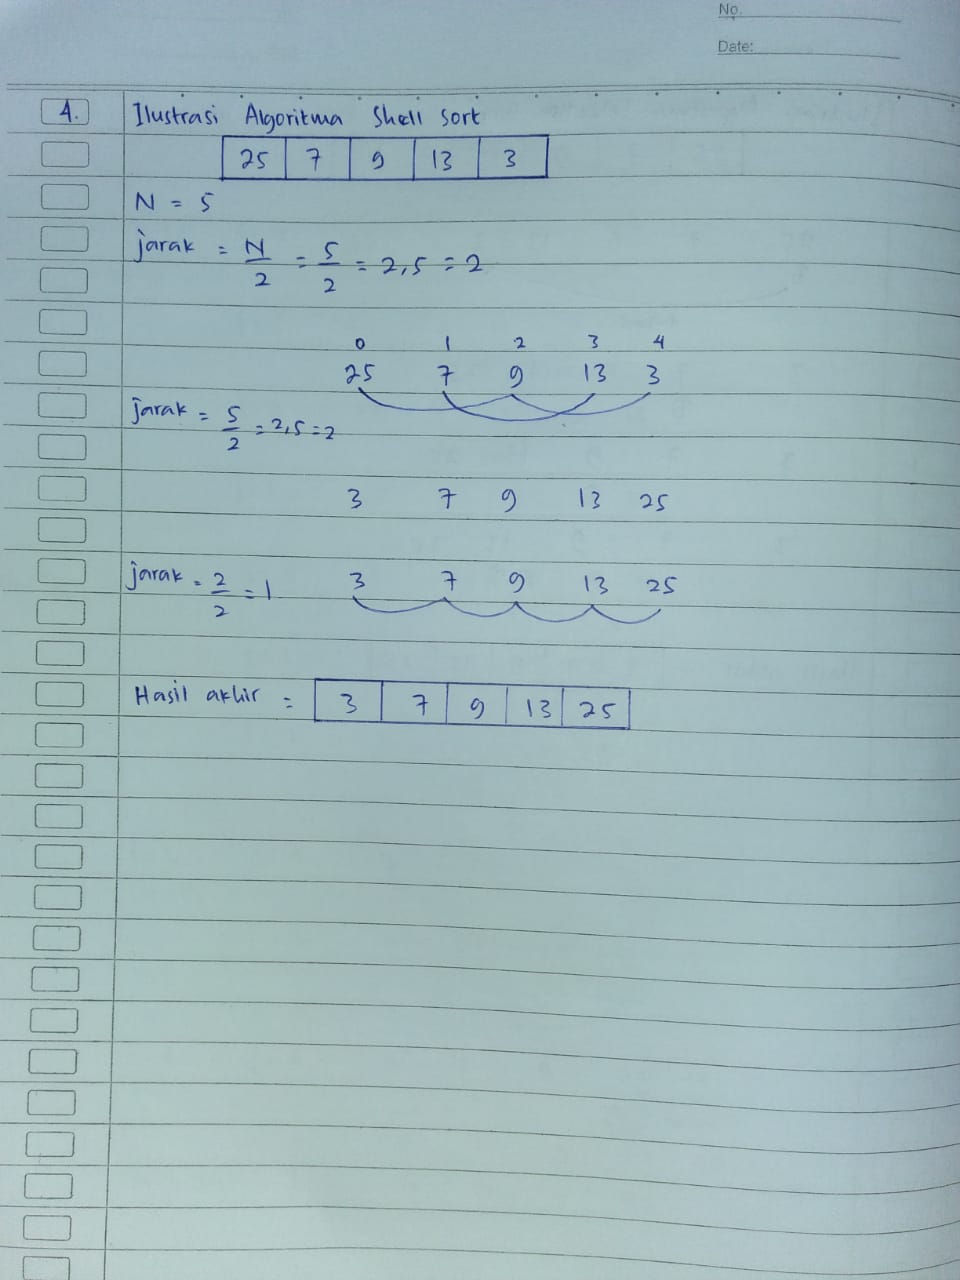 No.
Date:
4. Ilustrasi Algoritma Shell Sort
25 7 9 13 3
N = 5
jarak = N/2 = 5/2 = 2,5 = 2
0 1 2 3 4
25 7 9 13 3
jarak = 5/2 = 2,5 = 2
3 7 9 13 25
jarak = 2/2 = 1 3 7 9 13 25
Hasil akhir = 3 7 9 13 25